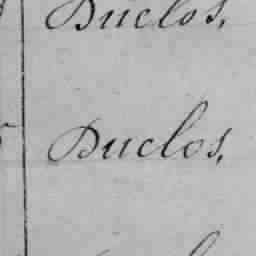 Duclos,
Duclos,